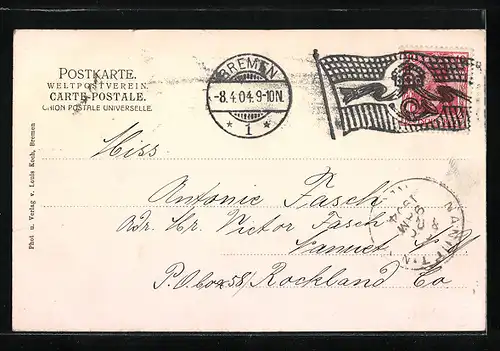 POSTKARTE.
WELTPOSTVEREIN.
CARTE-POSTALE.
UNION POSTALE UNIVERSELLE.
BREMEN
-8.4.04.9-10N.
* 1 *
Miss
Antonie Fasch
Adr. Hr. Victor Fasch
Nanuet N.Y.
P.O. box 58/ Rockland Co
Phot u. Verlag v. Louis Koch, Bremen